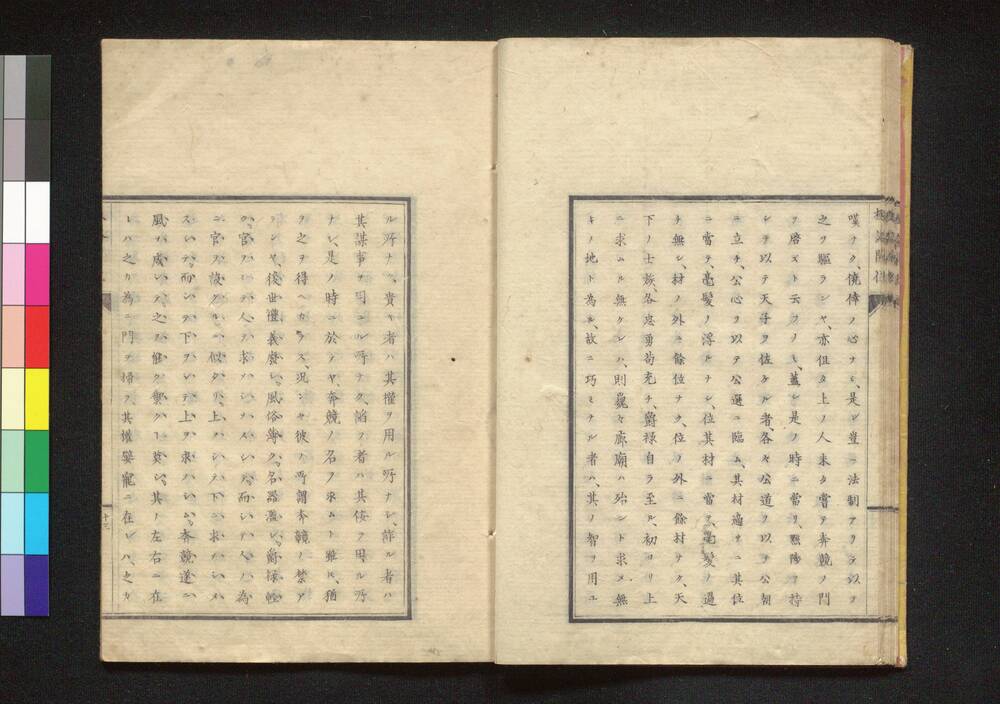 嘆ナク、僥倖ノ心ナシ、是レ豈ニ法制アリテ以テ
之ヲ驅ランヤ、亦但タ上ノ人未タ嘗テ奔競ノ門
ヲ啓ズト云フノミ、蓋シ是ノ時ニ當リ、黜陟ヲ持
シテ以テ天子ヲ佐クル者、各々公道ヲ以テ公朝
ニ立チ、公心ヲ以テ公選ニ臨ム、其材適サニ其位
ニ當テ毫髪ノ浮ルナシ、位其材ニ當テ、毫髪ノ過
チ無シ、材ノ外ニ餘位ナク、位ノ外ニ餘材ナク、天
下ノ士族、各忠勇苟充チ、爵禄自ラ至ル、初ヨリ上
ニ求ムル無クレハ、則巍々廊廟ハ殆ント求メ無
キノ地ト為ル、故ニ巧ミナル者ハ、其ノ智ヲ用ユ
ル所ナク、貴キ者ハ其權ヲ用ル所ナシ、詐ル者ハ
其謀事ヲ用ユル所ナク、諂フ者ハ其侫ヲ用ル所
ナシ、是ノ時ニ於テヤ、奔競ノ名ヲ求ムト雖ヒ、猶
ヲ之ヲ得ヘカラス、況ンヤ彼ノ所謂奔競ノ禁ア
ランヤ、後世禮義廢レ、風俗薄ク、名器濫レ、爵禄輕
ク、官ヲ人ニ求メスシテ而シテ人ハ為
ニ官ヲ設クルニ似タリ、上ハシテ下ニ求ハメ
スシテ、而シテ下ヲシテ上ヲ求ハシム、奔競遂ニ
風ヲ成シテ、之ヲ能ク禦クコト莫シ、其ノ左右ニ在
レハ之カ為ニ門ヲ掃ヲ、其權嬖寵ニ在レハ、之カ
十三